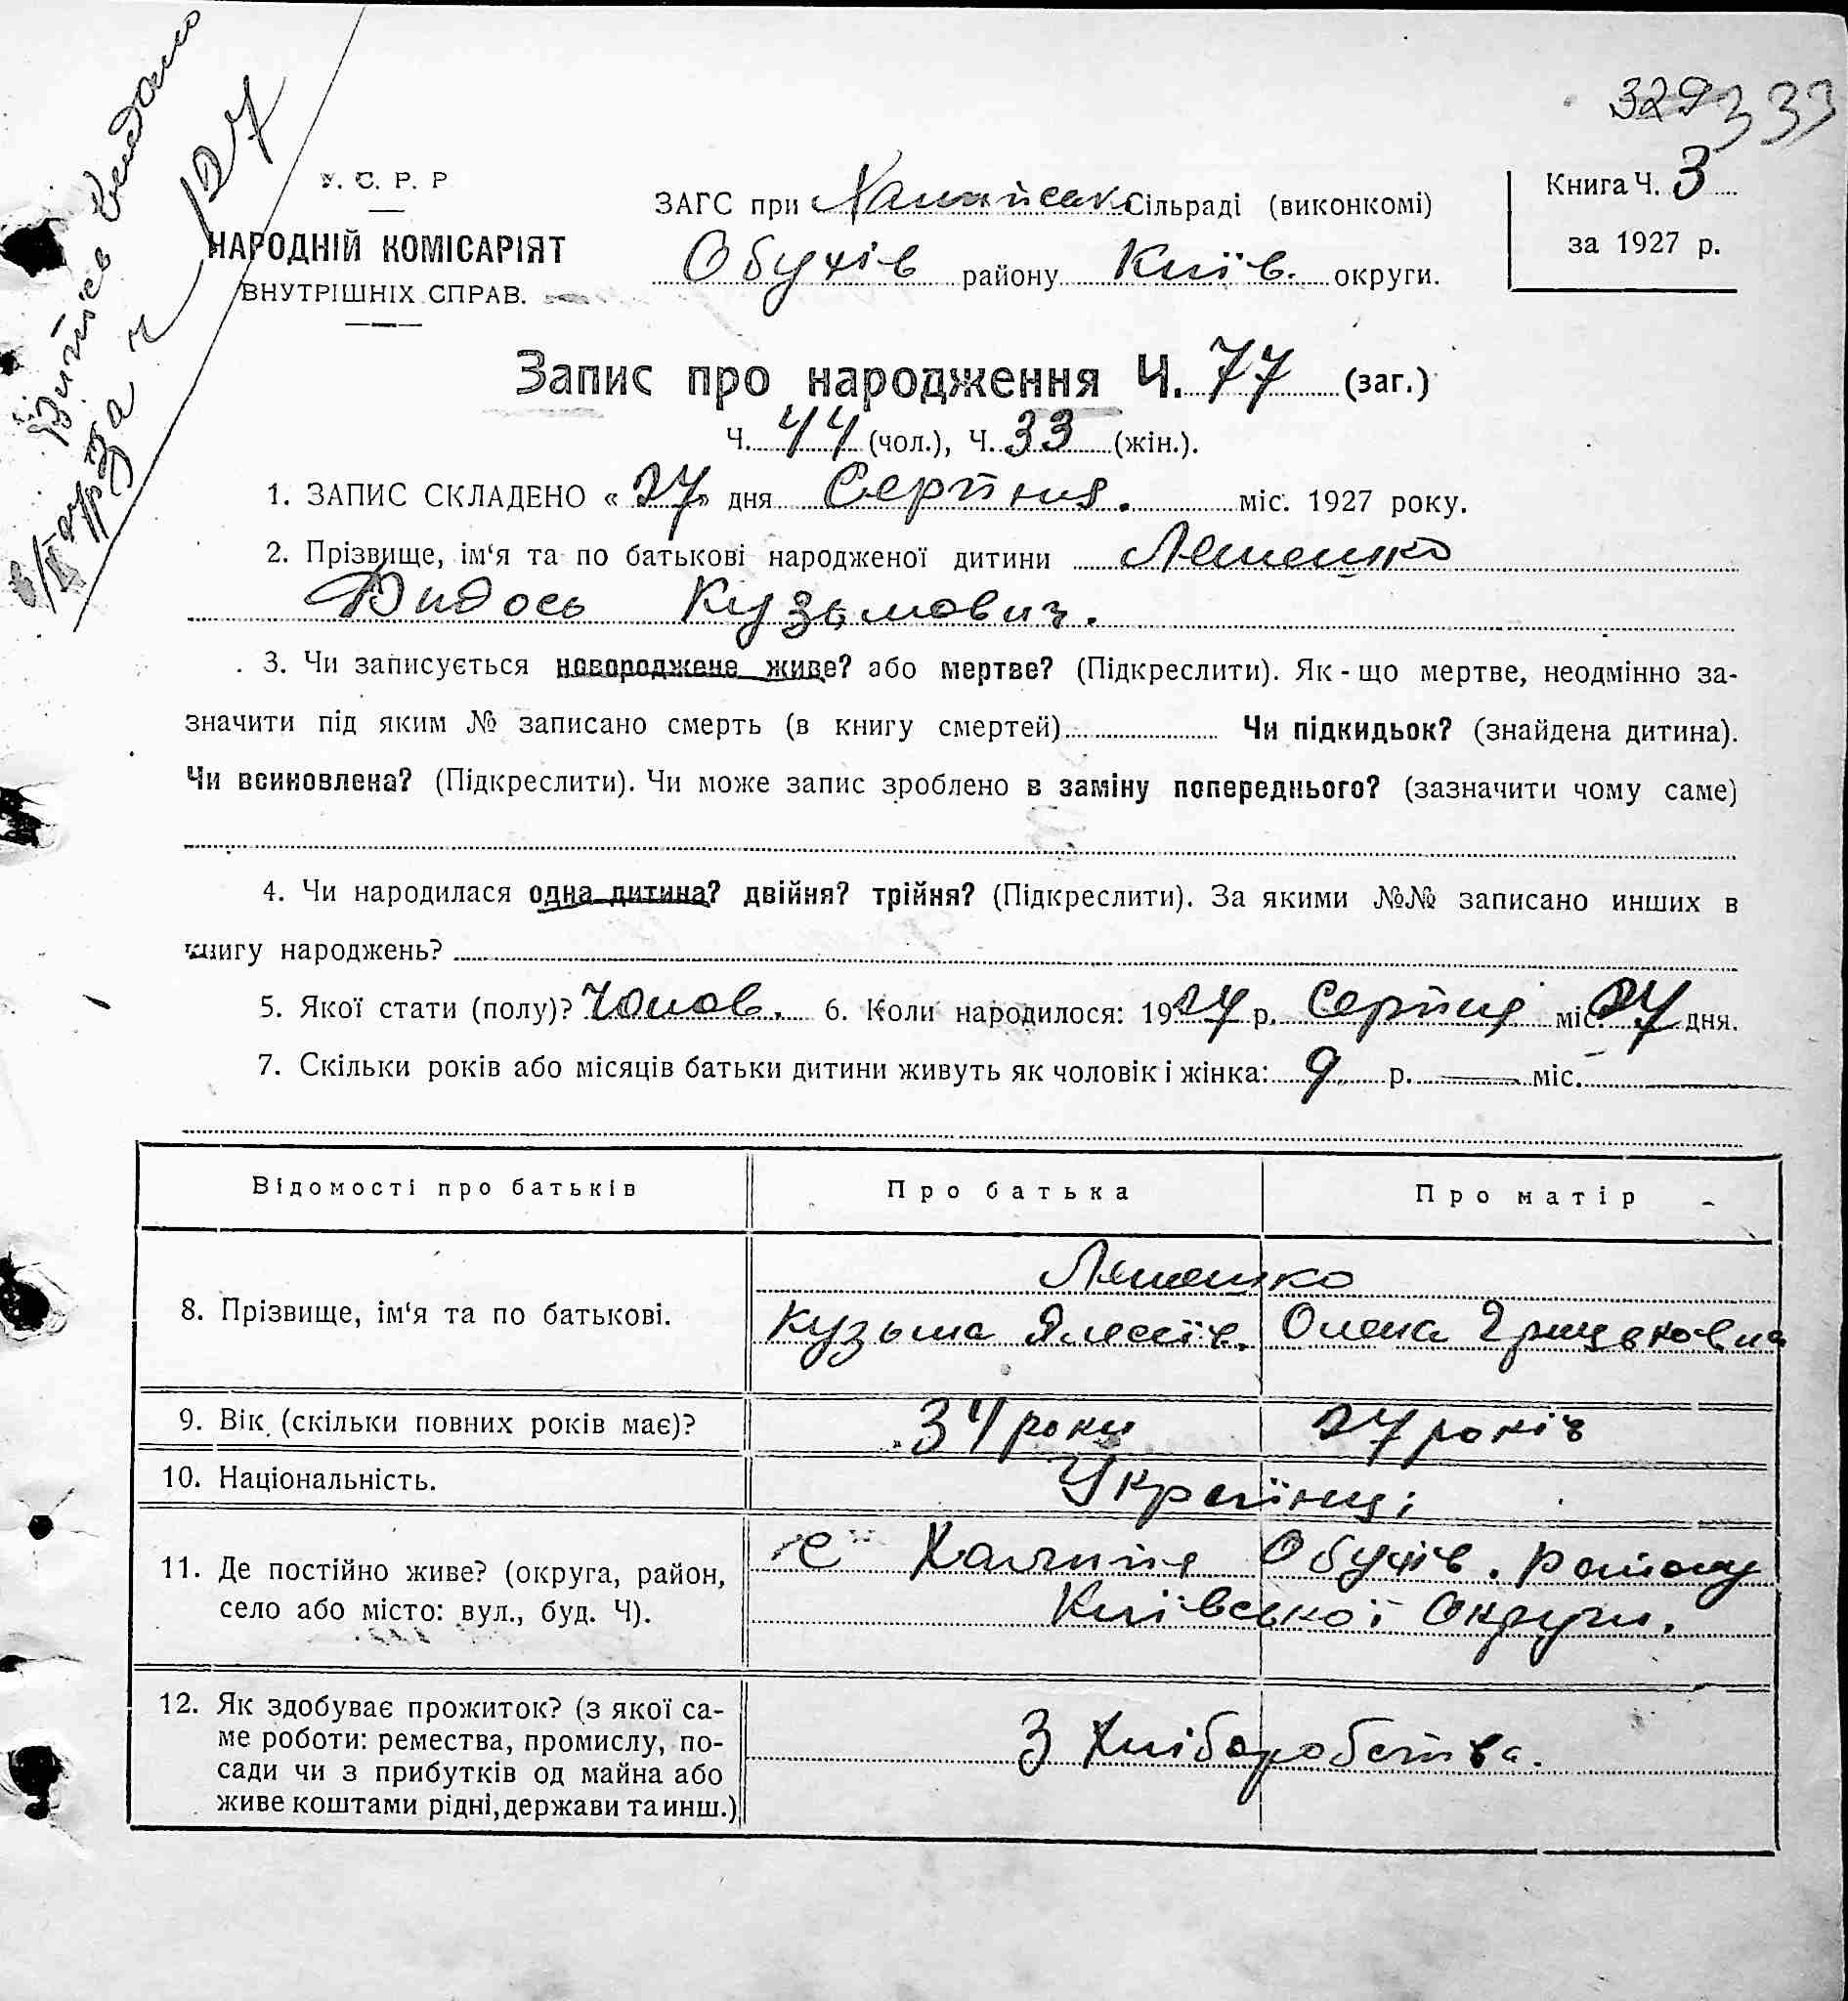 329 333
Витяг видано
за ч 127
У. С. Р. Р
НАРОДНІЙ КОМІСАРІЯТ
ВНУТРІШНІХ СПРАВ.
ЗАГС при Халепськ Сільраді (виконкомі)
Обухів району Київ. округи.
Книга Ч. 3
за 1927 р.
Запис про народження Ч. 77 (заг.)
Ч. 44 (чол.), Ч. 33 (жін.).
1. ЗАПИС СКЛАДЕНО « 27 » дня Серпня. міс. 1927 року.
2. Прізвище, ім‘я та по батькові народженої дитини
Кузьмович.
3. Чи записується новороджене живе? або мертве? (Підкреслити). Як - що мертве, неодмінно за-
значити під яким № записано смерть (в книгу смертей) Чи підкидьок? (знайдена дитина).
Чи всиновлена? (Підкреслити). Чи може запис зроблено в заміну попереднього? (зазначити чому саме)
4. Чи народилася одна дитина? двійня? трійня? (Підкреслити). За якими №№ записано инших в
книгу народжень?
5. Якої стати (полу)? Чолов. 6. Коли народилося: 1927 р. Серпня міс. 27 дня.
7. Скільки років або місяців батьки дитини живуть як чоловік і жінка: 9 р. — міс.
Відомості про батьків Про батька Про матір
8. Прізвище, ім‘я та по батькові.
Кузьма Олена Грицьковна
9. Вік (скільки повних років має)? 34 роки 27 років
10. Національність. Українці
11. Де постійно живе? (округа, район,
село або місто: вул., буд. Ч).
с Халепя Обухів. району
Київської Округи.
12. Як здобуває прожиток? (з якої са-
ме роботи: ремества, промислу, по-
сади чи з прибутків од майна або
живе коштами рідні, держави та инш.)
З Хліборобства.